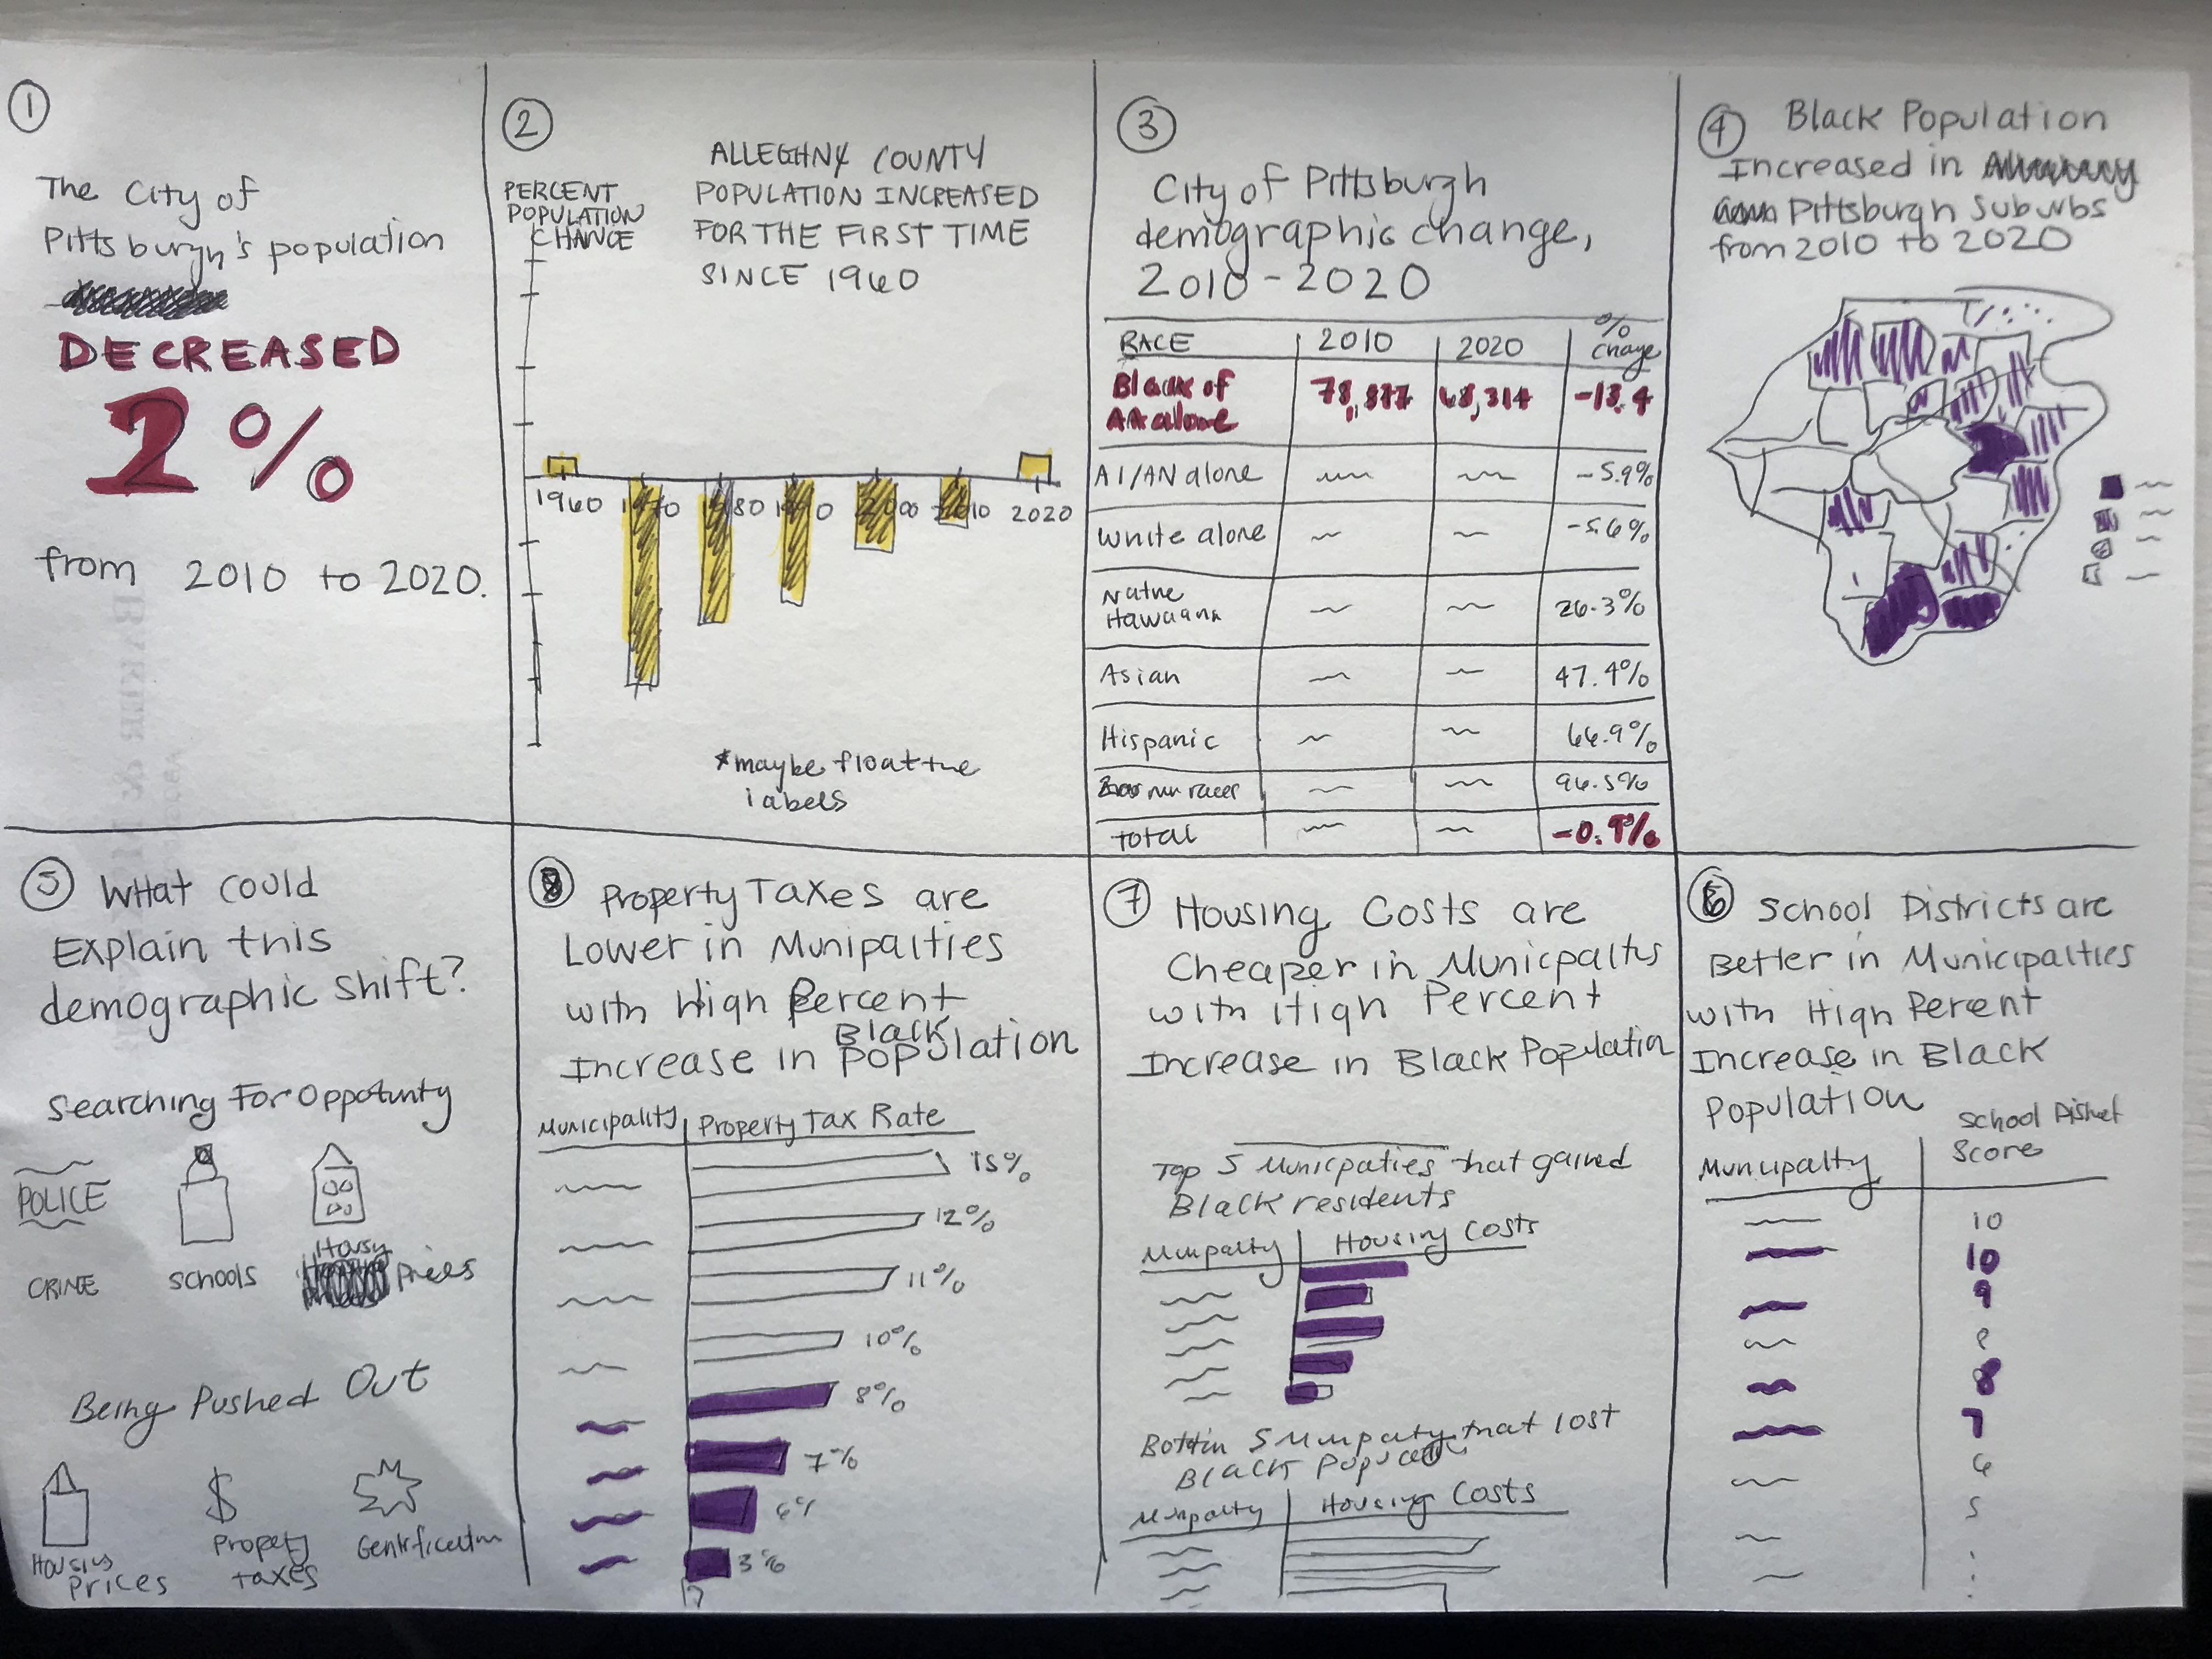 1
The City of
Pittsburgh's population
DECREASED
2%
from 2010 to 2020.
2
ALLEGHNY COUNTY
POPULATION INCREASED
FOR THE FIRST TIME
SINCE 1960
PERCENT
POPULATION
CHANGE
1960 1970 1980 1990 2000 2010 2020
*maybe float the
labels
3
City of Pittsburgh
demographic change,
2010-2020
RACE 2010 2020 % change
Black of
AA alone 68,314 -13.4
AI/AN alone -5.9%
White alone -5.6%
Native
Hawaaana 26.3%
Asian 47.4%
Hispanic 66.9%
races 96.5%
Total
4
Black Population
Increased in
Pittsburgh Suburbs
from 2010 to 2020
5
What could
Explain this
demographic shift?
Searching For Oppotunty
POLICE
CRIME
schools
Housy
Prices
Being Pushed Out
Housing
Prices
Propety
taxes
8
Property Taxes are
Lower in Munipalties
with High Percent
Black
Increase in population
Municipality Property Tax Rate
15%
12%
11%
10%
8%
7%
6%
3%
7
Housing Costs are
Cheaper in Municpalts
with High Percent
Increase in Black Populatin
Top 5 Municpaties that gained
Black residents
Munpalty Housing Costs
5 that lost
Black
Munpalty Housing Costs
6
School Districts are
Better in Municipalties
with High Perent
Increase in Black
Population
Muncipalty School District
Score
10
10
9
8
8
7
6
5